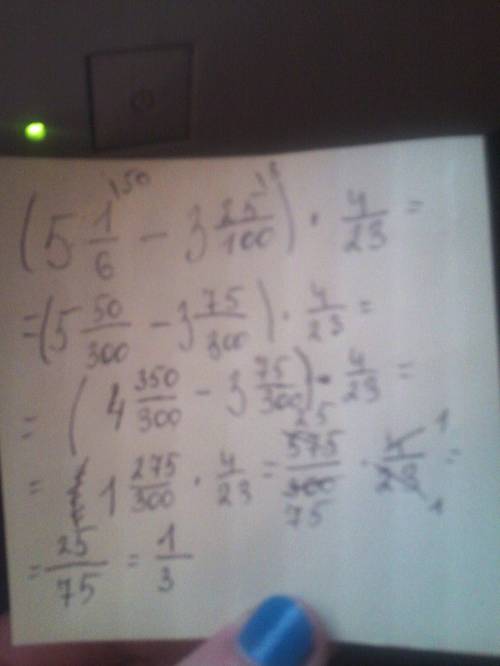 (5 1/6 ^50 - 3 25/100 ^3) · 4/23 =
= (5 50/300 - 3 75/300) · 4/23 =
= (4 350/300 - 3 75/300) · 4/23 =
= 1 275/300 · 4/23 = 575/300 25 75 · 4/23 1 1 =
= 25/75 = 1/3